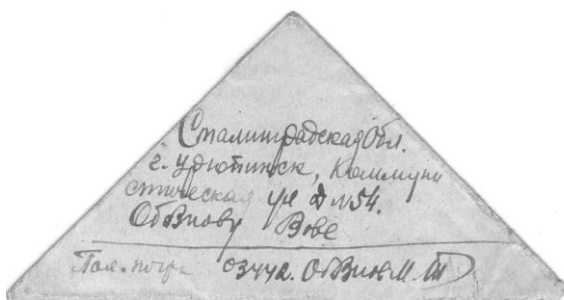 Сталинградская Обл.
г. Урюпинск, Коммуни
стическая ул д №54.
Обвнову Вове
Пол. почта 03442. Обвнов М.